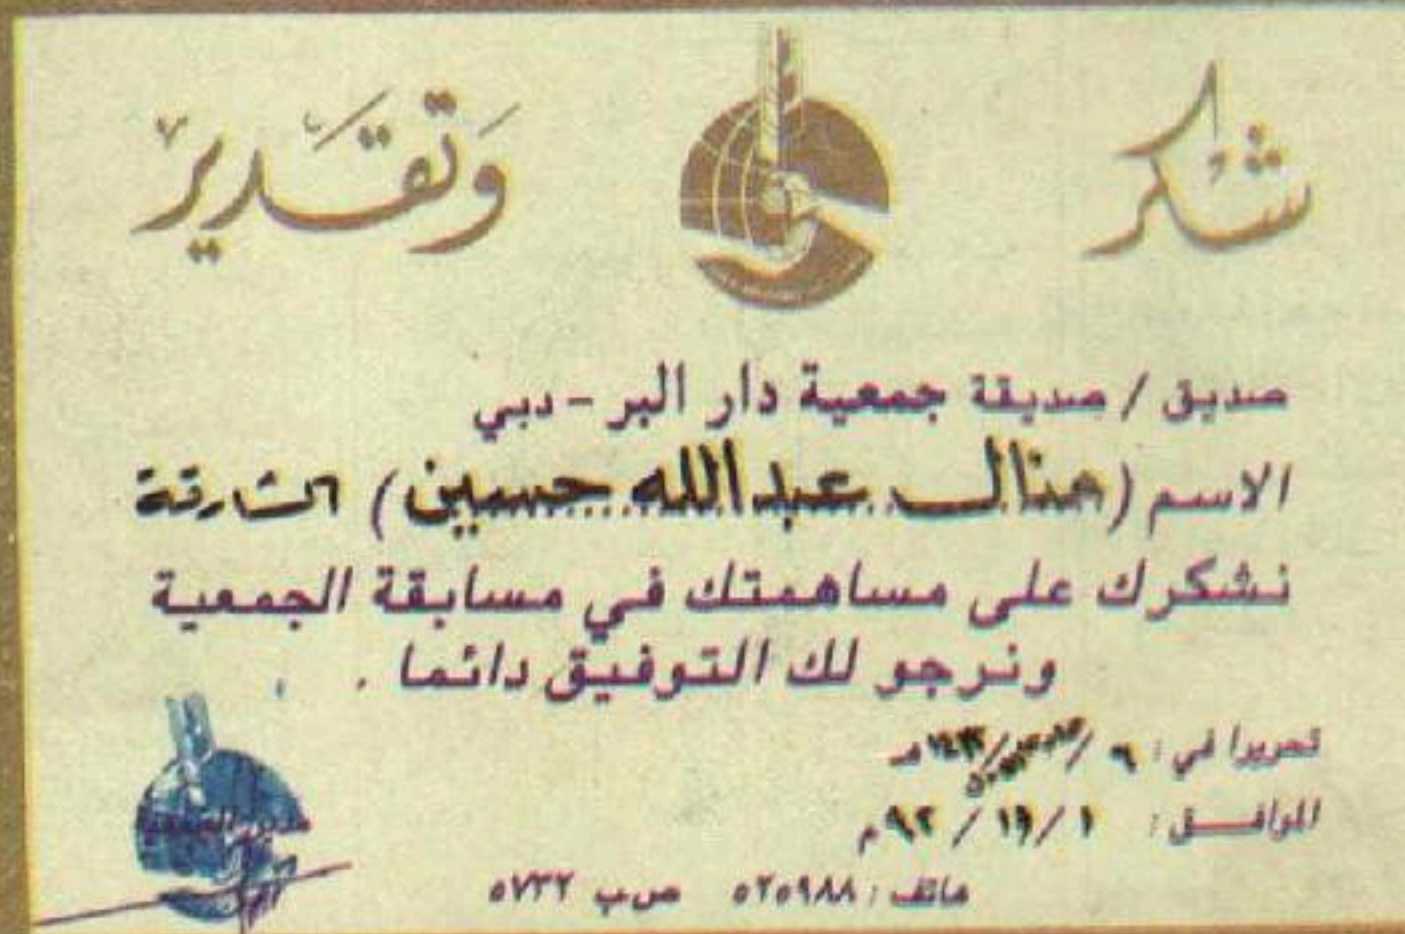 شكر وتقدير
صديق / صديقة جمعية دار البر - دبي
الاسم (منال عبدالله حسين) الشارقة
نشكرك على مساهمتك في مسابقة الجمعية
ونرجو لك التوفيق دائما .
تحريرا في : ٩ / هـ
الموافق : ١ / / ٩٢ م
هاتف : ٥٢٥٩٨٨ ص.ب ٥٧٣٢